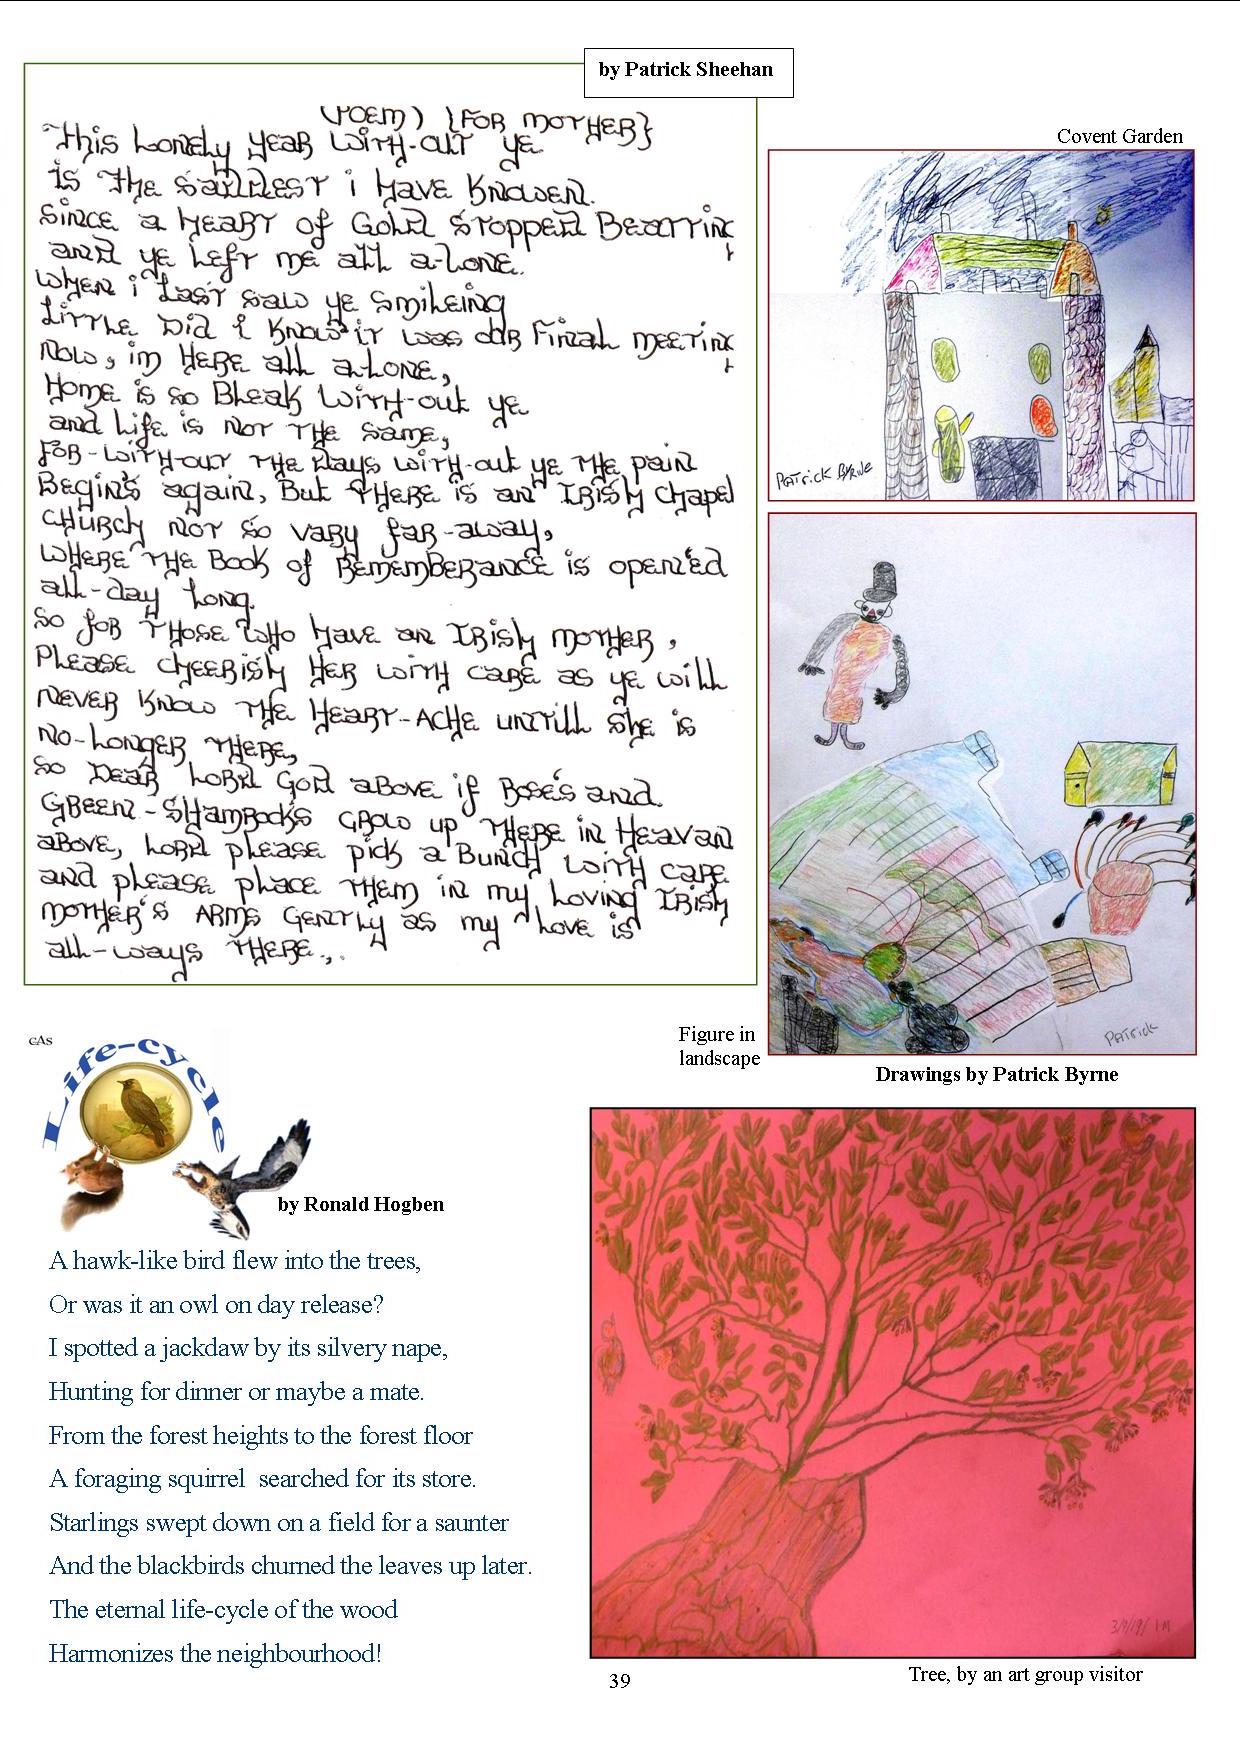 by Patrick Sheehan
(POEM) {FOR MOTHER}
This Lonely Year With-out ye
is The sadness i Have Knowen.
Since a Heart of Gold Stopped Beatting
and ye Left me all a-Lone.
When i Last saw ye smileing
Little Did i Know it was our Final meeting
Now, im Here all a-Lone,
Home is so Bleak With-out ye
and Life is not The same,
For-with-out The Days with-out ye The pain
Begin's again, But There is an Irish chapel
Church not so vary far-away,
Where The Book of Rememberance is open'ed
all-day Long.
So for Those who have an Irish mother,
Please cheerish Her with care as ye will
Never Know The Heart-Ache untill she is
No-Longer There,
So Dear Lord God above if Rose's and
Green-Shamrocks Grow up There in Heavan
above, Lord please pick a Bunch with care
and please place Them in my Loving Irish
Mother's Arms Gently as my Love is
all-ways There...
Covent Garden
Patrick Byrne
Patrick
Figure in
landscape
Drawings by Patrick Byrne
CAS
Life-cycle
by Ronald Hogben
A hawk-like bird flew into the trees,
Or was it an owl on day release?
I spotted a jackdaw by its silvery nape,
Hunting for dinner or maybe a mate.
From the forest heights to the forest floor
A foraging squirrel  searched for its store.
Starlings swept down on a field for a saunter
And the blackbirds churned the leaves up later.
The eternal life-cycle of the wood
Harmonizes the neighbourhood!
Tree, by an art group visitor
39